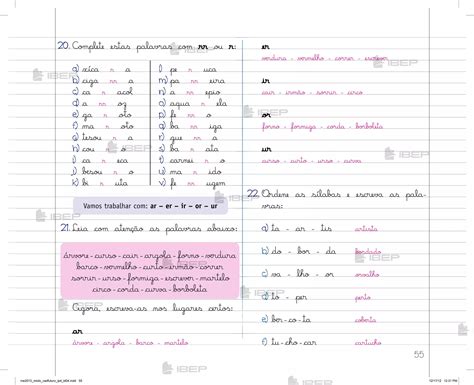 20. Complete estas palavras com rr ou r:
a) xíca r a
c) ca r acol
d) a r oz
e) ga r oto
f) ma r oto
g) tesou r a
h) cou r o
i) ca r eca
j) besou r o
k) bi r uta
l) pe r uca
n) a r epio
o) aqua r ela
p) fe r o
q) ba r iga
r) gue r a
s) ba r ata
t) carnei r o
v) fe r ugem
Vamos trabalhar com: ar – er – ir – or – ur
21. Leia com atenção as palavras abaixo:
árvore - curso - cair - angola - forno - verdura
barco - vermelho - curto - irmão - correr
sorrir - urso - formiga - escrever - martelo
circo - corda - curva - borboleta
Agora, escreva-as nos lugares certos:
ar
árvore - angola - barco - martelo
er
verdura - vermelho - correr - escrever
ir
cair - irmão - sorrir - circo
or
forno - formiga - corda - borboleta
ur
curso - curto - urso - curva
22. Ordene as sílabas e escreva as pala-
vras:
a) ta - ar - tis artista
b) do - bor - da bordado
c) va - lho - or orvalho
d) to - per perto
e) ber - co - ta coberta
f) tu - ra - ber
55
IBEP